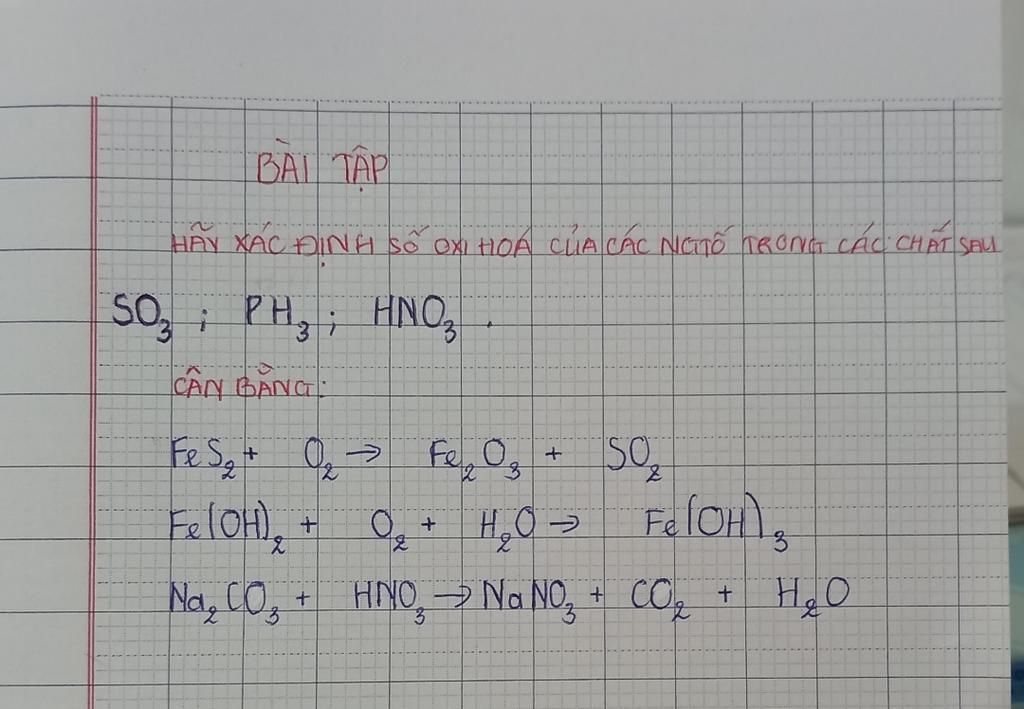 BÀI TẬP
HÃY XÁC ĐỊNH SỐ OXI HOÁ CỦA CÁC NGTỐ TRONG CÁC CHẤT SAU
SO₃ ; PH₃ ; HNO₃ .
CÂN BẰNG:
FeS₂ + O₂ → Fe₂O₃ + SO₂
Fe(OH)₂ + O₂ + H₂O → Fe(OH)₃
Na₂CO₃ + HNO₃ → NaNO₃ + CO₂ + H₂O